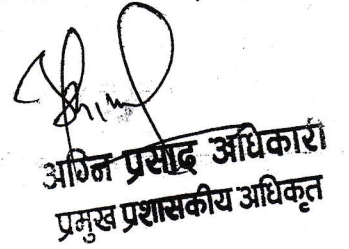 अग्नि प्रसाद अधिकारी
प्रमुख प्रशासकीय अधिकृत